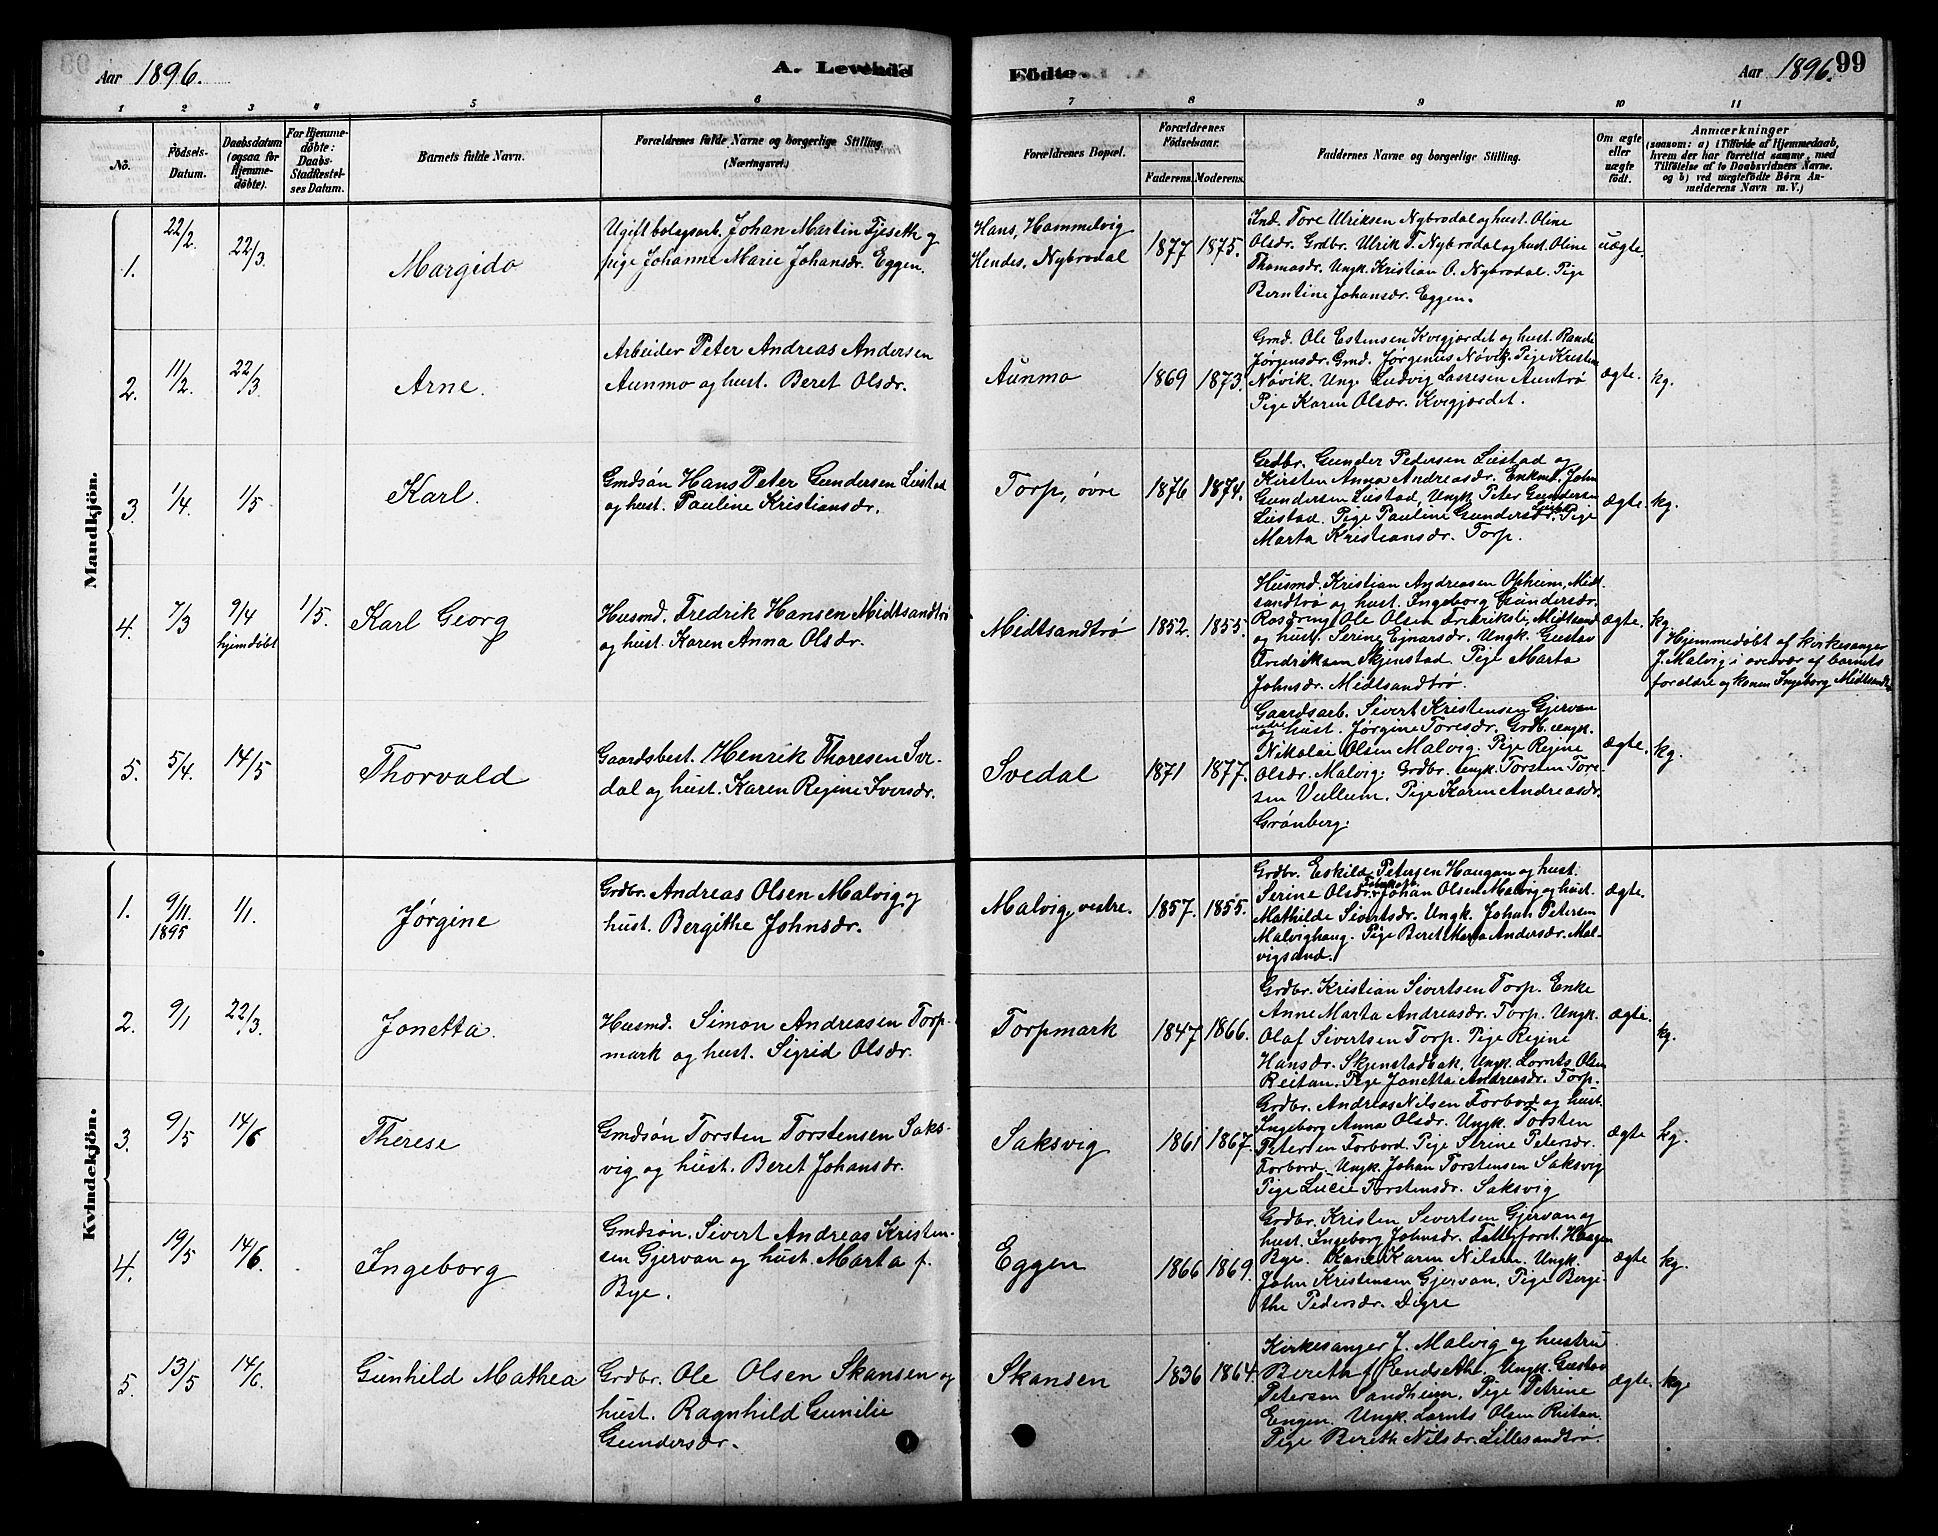 Aar 1896.
A. Levende
Födte.
Aar 1896.
99
1
2
3
4
5
6
7
8
9
10
11
No.
Födsels-
Datum.
Daabsdatum
(ogsaa for
Hjemme-
døbte).
For Hjemme-
døbte:
Daabs-
Stadfæstel-
ses Datum.
Barnets fulde Navn.
Forældrenes fulde Navne og borgerlige Stilling.
(Næringsvei.)
Forældrenes Bopæl.
Forældrenes
Födselsaar.
Faderens.
Moderens.
Faddernes Navne og borgerlige Stilling.
Om ægte
eller
uægte
født.
Anmærkninger
(saasom: a) i Tilfælde af Hjemmedaab,
hvem der har forrettet samme, med
Tilføielse af to Daabsvidners Navne.
og b) ved uægtefødte Børn An-
melderens Navn m. V.)
Mandkjön.
1.
22/2.
22/3.
Margido
Ugift bolagsarb. Johan Martin Fjeseth og
pige Johanne Marie Johansdr. Eggen.
Hans, Hammelvig
Hendes, Nybrodal
1877
1875.
Ind. Tore Ulriksen Nybrodal og hust. Oline
Olsdr. Grdbr. Ulrik T. Nybrodal og hust. Oline
Thomasdr. Ungk. Kristian O. Nybrodal. Pige
Berntine Johansdr. Eggen.
uægte.
2.
11/2.
22/3.
Arne.
Arbeider Peter Andreas Andersen
Aunmo og hust. Beret Olsdr.
Aunmo
1869
1873.
Gmd. Ole Estensen Kvigjordet og hust. Randi
Jørgensdr. Gmd. Jørgenus Nøvik. Pige Kristen
Nøvik. Ungk. Ludvig Lassesen Auntrø
Pige Karen Olsdr. Kvigjordet.
ægte.
kg.
3.
1/4.
1/5
Karl.
Gmdsøn Hans Peter Gundersen Liestad
og hust. Pauline Kristiansdr.
Torp, øvre
1876
1874.
Grdbr. Gunder Pedersen Liestad og
Kirsten Anna Andreasdr. Enkmd. John
Gundersen Liestad, Ungk. Peter Gundersen
Liestad. Pige Pauline Gundersdr. Pige
Marta Kristiansdr. Torp.
ægte.
kg.
4.
7/3
9/4
hjemdøbt
1/5.
Karl Georg
Husmd. Fredrik Hansen Midtsandtrø
og hust. Karen Anna Olsdr.
Midtsandtrø
1852.
1855.
Husmd. Kristian Andreasen Opheim, Midt-
sandtrø og hust. Ingeborg Gundersdr.
Ole Olsen Midtsand
og hust. Serine Ejnarsdr. Ungk. Gustav
Fredriksen Skjenstad. Pige Marta
Johnsdr. Midtsandtrø.
ægte.
kg.
Hjemmedøbt af kirkesanger
J. Malvig i overvær af barnets
forældre og konen Ingeborg Midtsandtrø
5.
5/4.
14/5
Thorvald
Gaardsbest. Henrik Thoresen Sve-
dal og hust. Karen Regine Iversdr.
Svedal
1871
1877.
Gaardsarb. Sivert Kristensen Gjervan
og hust. Jørgine Toresdr. Grdb. ungk.
Nikolai Olsen Malvig. Pige Regine
Olsdr. Malvig. Grdbr. ungk. Torsten Tore-
sen Vullum. Pige Karen Andreasdr.
Grønberg.
ægte.
kg.
Kvindekjön.
1.
9/11.
1895
1/1.
Jørgine
Grdbr. Andreas Olsen Malvig og
hust. Bergithe Johnsdr.
Malvig, vestre.
1857.
1855.
Grdbr. Eskild Petersen Haugan og hust.
Serine Olsdr. Johan Olsen Malvig og hust.
Mathilde Sivertsdr. Ungk. Johan Petersen
Malvighaug. Pige Beret Marta Andersdr. Mal-
vigsand.
ægte.
2.
9/1
22/3.
Jonetta.
Husmd. Simon Andreasen Torp-
mark og hust. Sigrid Olsdr.
Torpmark
1847
1866.
Grdbr. Kristian Sivertsen Torp. Enke
Anne Marta Andreasdr. Torp. Ungk.
Olaf Sivertsen Torp. Pige Regine
Hansdr. Skjenstadbak, Ungk. Lornts Olsen
Reitan. Pige Jonetta Andreasdr. Torp.
ægte.
kg.
3.
9/5
14/6
Therese
Gmdsøn Torsten Torstensen Saks-
vig og hust. Beret Johansdr.
Saksvig
1861
1867.
Grdbr. Andreas Nilsen Forbord og hust.
Ingeborg Anna Olsdr. Ungk. Torsten
Petersen Forbord. Pige Serine Petersdr.
Forbord. Ungk. Johan Torstensen Saksvig
Pige Lucie Torstensdr. Saksvig
ægte
kg.
4.
19/5
14/6.
Ingeborg
Gmdsøn. Sivert Andreas Kristen-
sen Gjervan og hust. Marta f.
Bye.
Eggen
1866
1869.
Grdbr. Kristen Sivertsen Gjervan og
hust. Ingeborg Johnsdr. Fattigforst. Haagen
Bye. Karen Nilsen. Ungk.
John Kristensen Gjervan, Pige Bergi-
the Pedersdr. Digre
ægte
kg.
5.
13/5
14/6.
Gunhild Mathea
Grdbr. Ole Olsen Skansen og
hust. Ragnhild Gunilie
Gundersdr.
Skansen
1836
1864.
Kirkesanger J. Malvig og hustru
Bereth f. Endseth. Ungk. Gustav
Petersen Sandheim. Pige Petrine
Engen. Ungk. Lornts Olsen Reitan.
Pige Bereth Nilsdr. Lillesandtrø.
ægte.
kg.